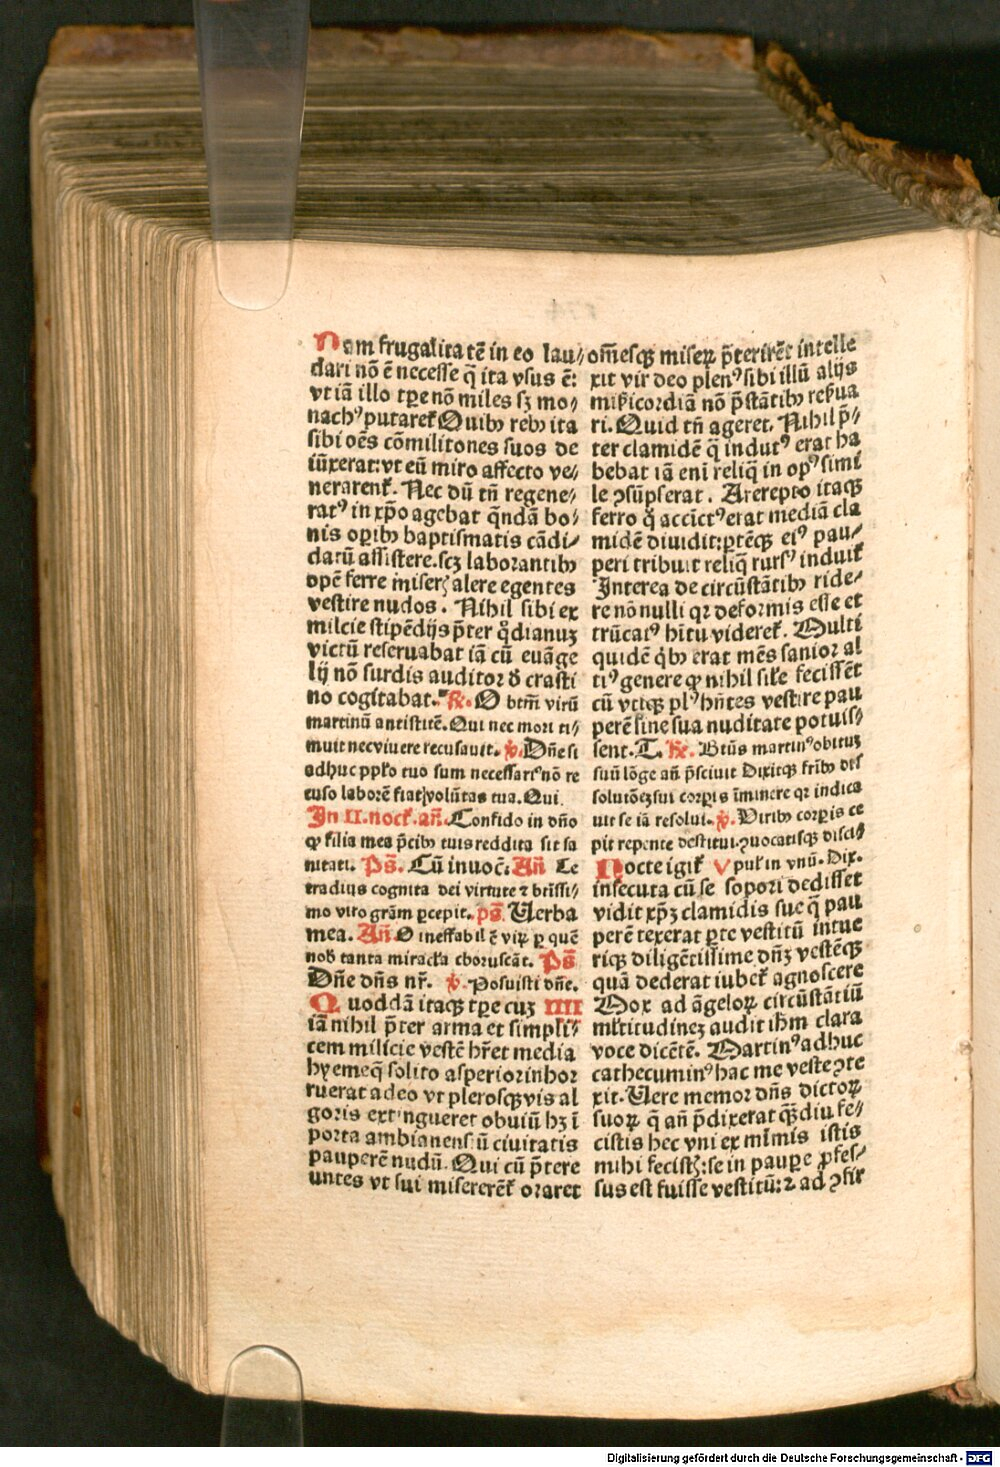 Nam frugalitatē in eo lau⸗
dari nō ē necesse q̄ ita vsus ē:
vt iā illo tꝑe nō miles sꝫ mo⸗
nachꝰ putaret̉ Quibꝰ rebꝰ ita
sibi oēs cōmilitones suos de
iūxerat: vt eū miro affecto ve⸗
nerarent̉. Nec dū tn̄ regene⸗
ratꝰ in xp̄o agebat q̄ndā bo⸗
nis oꝑibꝰ baptismatis cādi⸗
datū assistere. scꝫ laborantibꝰ
opē ferre miserꝭ alere egentes
vestire nudos. Nihil sibi ex
milicie stipēdijs p̄ter q̊dianuꝫ
victū reseruabat iā cū euāge
lij nō surdis auditor đ crasti
no cogitabat. ℟. O btm̄ virū
martinū antistitē. Qui nec mori ti⸗
muit nec viuere recusauit. ℣. Dn̄e si
adhuc pplo̅ tuo sum necessariꝰ nō re
cuso laborē fiat volūtas tua. Qui.
In II. noct̉. an̄. Confido in dn̄o
ꝙ filia mea p̄cibꝰ tuis reddita sit sa
nitati. Ps̄. Cū inuoc̄. An̄ Te
tradius cognita dei virtute ⁊ btīssi⸗
mo viro grām ꝑcepit. ps̄. Uerba
mea. An̄ O ineffabilē viꝝ ꝑ quē
nob̄ tanta miracl̉a choruscāt. Ps̄
Dn̄e dn̄s nr̄. ℣. Posuisti dn̄e.
Quoddā itaqꝫ tꝑe cuꝫ IIII
iā nihil p̄ter arma et simpli⸗
cem milicie vestē hr̄et media
hyeme q̄ solito asperior inhor
ruerat adeo vt plerosqꝫ vis al
goris extingueret obuiū hꝫ ī
porta ambianensiū ciuitatis
pauperē nudū. Qui cū p̄tere
untes vt sui misererēt̉ oraret
om̄esqꝫ miseꝝ p̄terirēt intelle
xit vir deo plenꝰ sibi illū alijs
mīs̉icordiā nō p̄stātibꝰ res̉ua
ri. Quid tn̄ ageret. Nihil p̄⸗
ter clamidē q̄ indutꝰ erat ha
bebat iā enī reliq̄ in opꝰ simi
le ꝯsūpserat. Arrepto itaqꝫ
ferro q̊ accīctꝰ erat mediā cla
midē diuidit: ꝑtēqꝫ eiꝰ pau⸗
peri tribuit reliq̄ rursꝰ induit̉
Interea de circūstātibꝰ ride⸗
re nōnulli qr deformis esse et
trūcatꝰ hītu videret̉. Multi
quidē q̊bꝰ erat mēs sanior al
tiꝰ genere ꝙ nihil sil̉e fecissēt
cū vtiqꝫ plꝰ hn̄tes vestire pau
perē sine sua nuditate potuis⸗
sent. T. ℟. Btūs martinꝰ obituꝫ
suū lōge an̄ p̄sciuit Dixitqꝫ fr̄ibꝰ dis
solutōeꝫ sui corꝑis īminere qr indica
uit se iā resolui. ℣. Viribꝰ corꝑis ce
pit repente destitui. ꝯuocatisqꝫ discip̉
Nocte igit̉ V pul̉ in vnū. Dix.
insecuta cū se sopori dedisset
vidit xp̄ꝫ clamidis sue q̄ pau
perē texerat ꝑte vestitū intue
riqꝫ diligētissime dn̄ꝫ vestēqꝫ
quā dederat iubet̉ agnoscere
Mox ad āgeloꝝ circūstātiū
ml̉titudineꝫ audit ih̄m clara
voce dicētē. Martinꝰ adhuc
cathecuminꝰ hac me veste ꝯte
xit. Uere memor dn̄s dictoꝝ
suoꝝ q̄ an̄ p̄dixerat qꝫdiu fe⸗
cistis hec vni ex mīmis istis
mihi fecistꝭ: se in pauꝑe ꝓfes⸗
sus est fuisse vestitū: ⁊ ad ꝯfir
Digitalisierung gefördert durch die Deutsche Forschungsgemeinschaft - DFG